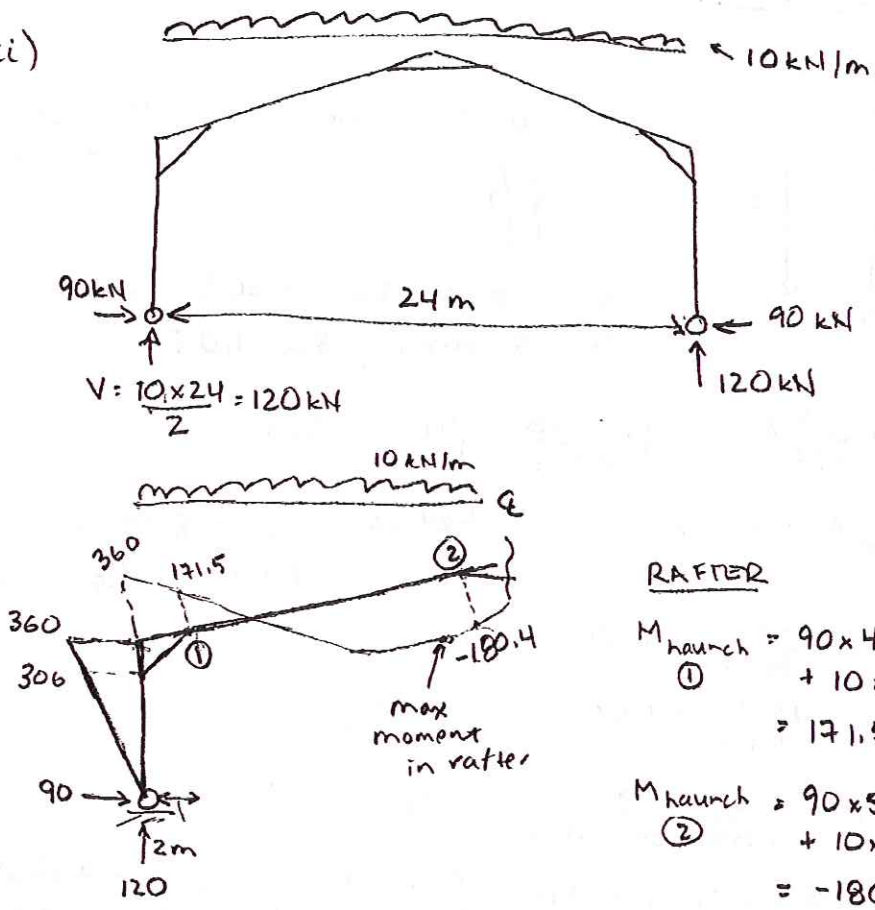 ii)
10 kN/m
90kN
24 m
90 kN
V = 10 x 24 / 2 = 120 kN
120 kN
10 kN/m
℄
360
171.5
②
360
306
①
-180.4
max
moment
in rafter
90
2m
120
RAFTER
M haunch ① = 90 x 4
+ 10
= 171.5
M haunch ② = 90 x 5
+ 10x
= -180